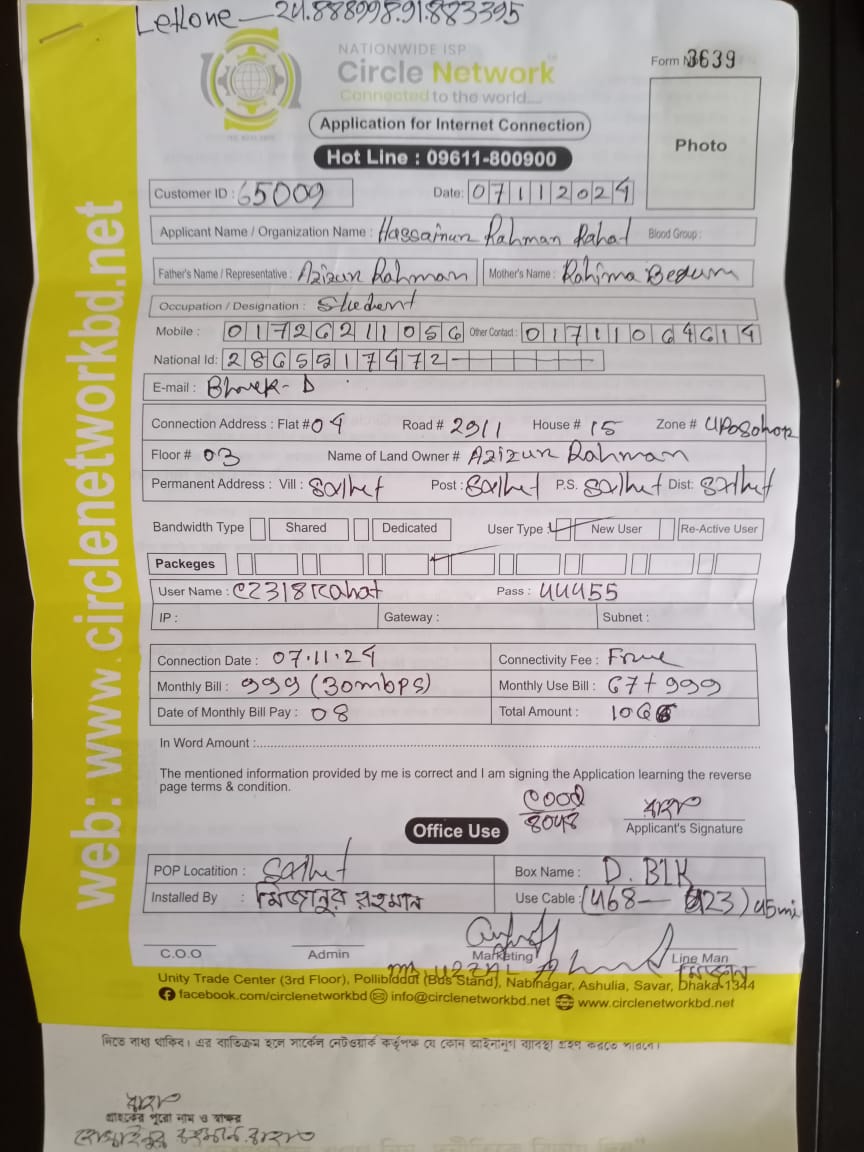 24.888998.91.883395
NATIONWIDE ISP
Circle Network
Connected to the world....
Form No 3639
Application for Internet Connection
Hot Line : 09611-800900
Photo
Customer ID : 65009 Date: 07112024
Applicant Name / Organization Name : Hassainur Rahman Rahat Blood Group :
Father's Name / Representative : Azizur Rahman Mother's Name : Rahima Begum
Occupation / Designation : Student
Mobile : 01726211056 Other Contact : 01711064614
National Id: 2865517472
E-mail :
Connection Address : Flat # 04 Road # 29/1 House # 15 Zone # Uposohor
Floor # 03 Name of Land Owner # Azizur Rahman
Permanent Address : Vill : Sylhet Post : Sylhet P.S. Sylhet Dist: Sylhet
Bandwidth Type Shared Dedicated User Type : New User Re-Active User
Packeges
User Name : c2318Rahat Pass : 44455
IP : Gateway : Subnet :
Connection Date : 07.11.24 Connectivity Fee : Free
Monthly Bill : 999 (30mbps) Monthly Use Bill : 67+999
Date of Monthly Bill Pay : 08 Total Amount : 1066
In Word Amount :
The mentioned information provided by me is correct and I am signing the Application learning the reverse
page terms & condition.
8048
রাহাত
Applicant's Signature
Office Use
POP Locatition : Sylhet Box Name : D. B1K
Installed By : মিজানুর রহমান Use Cable : (468— 423) 45mi
C.O.O Admin Marketing Line Man
মিজান
Unity Trade Center (3rd Floor), Pollibiddut (Bus Stand), Nabinagar, Ashulia, Savar, Dhaka-1344
facebook.com/circlenetworkbd info@circlenetworkbd.net www.circlenetworkbd.net
web: www.circlenetworkbd.net
দিতে বাধ্য থাকিব। এর ব্যতিক্রম হলে সার্কেল নেটওয়ার্ক কর্তৃপক্ষ যে কোন আইনানুগ ব্যবস্থা গ্রহণ করতে পারবে।
রাহাত
গ্রাহকের পুরো নাম ও স্বাক্ষর
রহমান রাহাত